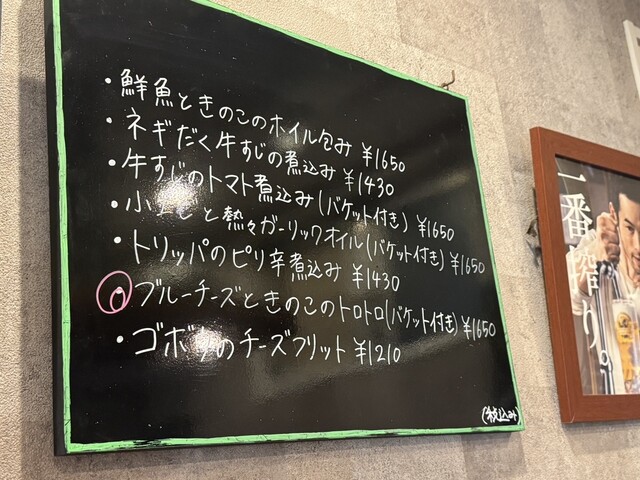 ・鮮魚ときのこのホイル包み ¥1650
・ネギだく牛すじの煮込み ¥1430
・牛すじのトマト煮込み(バケット付き) ¥1650
・小 と熱々ガーリックオイル(バケット付き) ¥1650
・トリッパのピリ辛煮込み ¥1430
ブルーチーズときのこのトロトロ(バケット付き) ¥1650
・ゴボウのチーズフリット ¥1210
(税込み)
一番搾り。